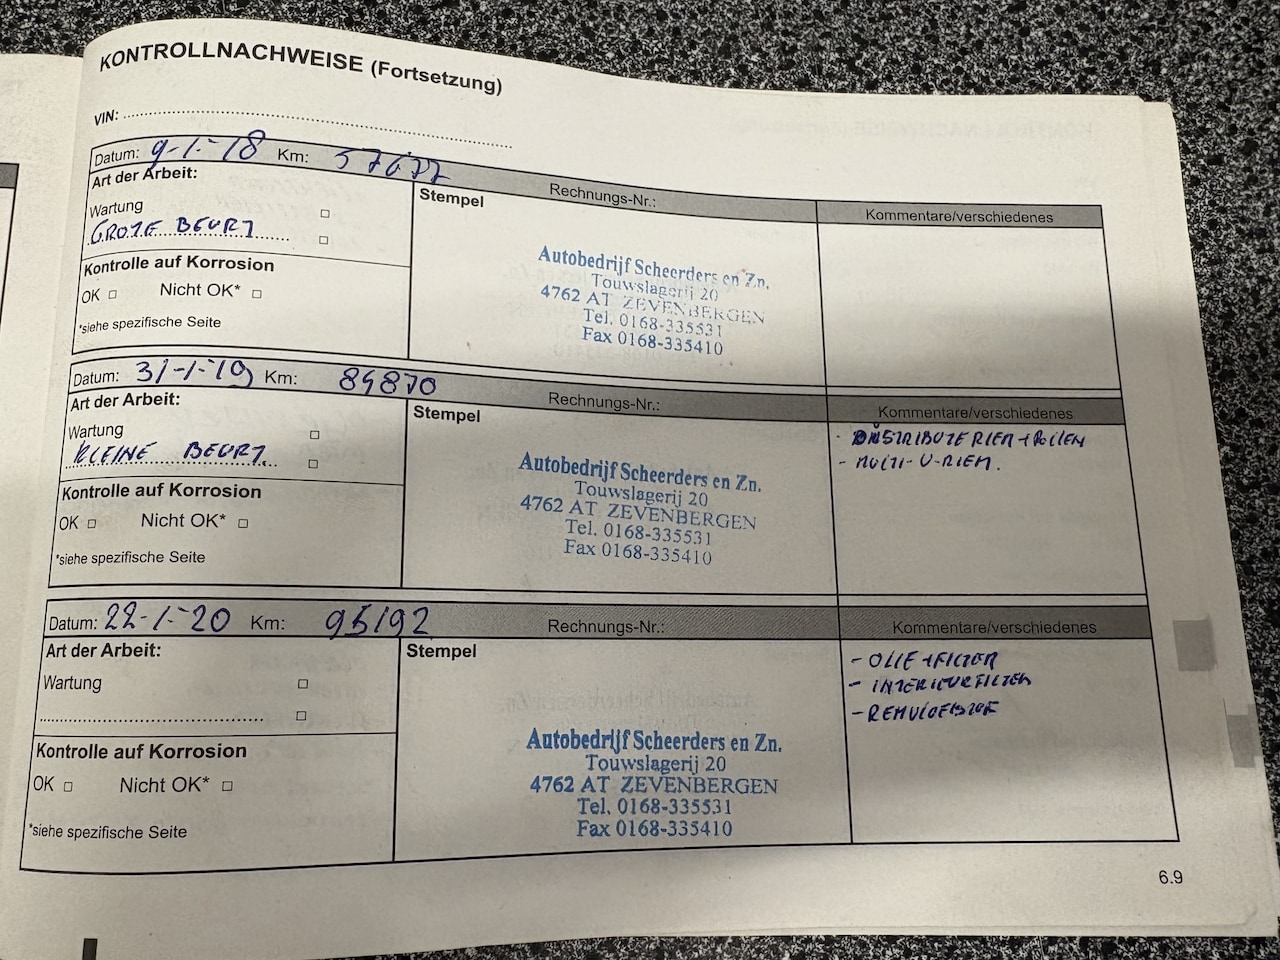 KONTROLLNACHWEISE (Fortsetzung)
VIN:
Datum: 9-1-18 Km: 57677 Rechnungs-Nr.:
Art der Arbeit:
Stempel
Kommentare/verschiedenes
Wartung
GROTE BEURT
Kontrolle auf Korrosion
OK Nicht OK*
*siehe spezifische Seite
Autobedrijf Scheerders en Zn.
Touwslagerij 20
4762 AT ZEVENBERGEN
Tel. 0168-335531
Fax 0168-335410
Datum: 31-1-19 Km: 84870 Rechnungs-Nr.:
Art der Arbeit:
Stempel
Kommentare/verschiedenes
Wartung
KLEINE BEURT.
Kontrolle auf Korrosion
OK Nicht OK*
*siehe spezifische Seite
Autobedrijf Scheerders en Zn.
Touwslagerij 20
4762 AT ZEVENBERGEN
Tel. 0168-335531
Fax 0168-335410
- DISTRIBUTIE RIEM + ROLLEN
- MULTI-V-RIEM.
Datum: 22-1-20 Km: 95192 Rechnungs-Nr.:
Art der Arbeit:
Stempel
Kommentare/verschiedenes
Wartung
Kontrolle auf Korrosion
OK Nicht OK*
*siehe spezifische Seite
Autobedrijf Scheerders en Zn.
Touwslagerij 20
4762 AT ZEVENBERGEN
Tel. 0168-335531
Fax 0168-335410
- OLIE + FILTER
- INTERIEURFILTER
- REMVLOEISTOF
6.9